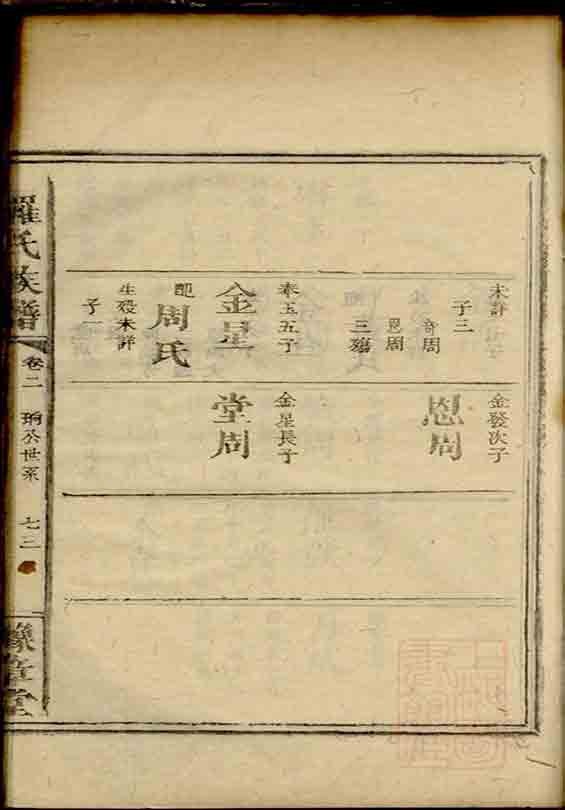 未詳
子三
奇周
恩周
三殤
奉玉五子
金星
配
周氏
生殁未詳
子一
金發次子
恩周
金星長子
堂周
羅氏族譜
卷二
珦公世系
七三
豫章堂